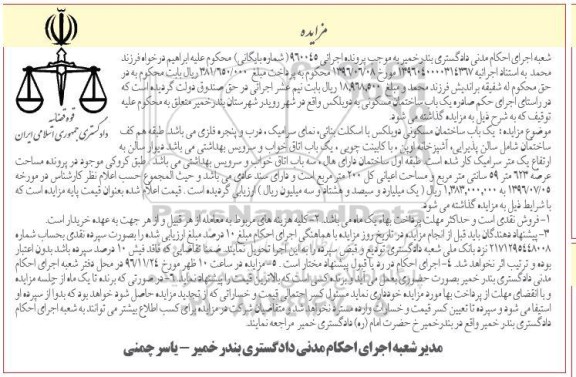 مزایده
قوه قضائیه
دادگستری جمهوری اسلامی ایران
شعبه اجرای احکام مدنی دادگستری بندرخمیر به موجب پرونده اجرائی ۹۶۰۰۴۵ (شماره بایگانی) محکوم علیه ابراهیم درخواه فرزند
محمد به استناد اجرائیه مورخ ۱۳۹۶/۰۶/۰۸ محکوم به پرداخت مبلغ ۳۸۱/۶۵۰/۰۰۰ ریال بابت محکوم به در
حق محکوم له شفیقه براندیش فرزند محمد و مبلغ ریال بابت نیم عشر اجرائی در حق صندوق دولت گردیده است که
در راستای اجرای حکم صادره یک باب ساختمان مسکونی به دوبلکس واقع در شهر رویدر شهرستان بندرخمیر متعلق به محکوم علیه
توقیف که به شرح ذیل به مزایده گذاشته می شود.
موضوع مزایده: یک باب ساختمان مسکونی دوبلکس با اسکلت بنائی، نمای سرامیک، درب و پنجره فلزی می باشد طبقه هم کف
ساختمان شامل سالن پذیرایی، آشپزخانه اوپن، با کابینت چوبی، یک باب اتاق خواب و سرویس بهداشتی می باشد دیوار سالن به
ارتفاع یک متر سرامیک کار شده است طبقه اول ساختمان دارای هال، سه باب اتاق خواب و سرویس بهداشتی می باشد. طبق کروکی موجود در پرونده مساحت
عرصه ۶۲۳ متر ۵۹ سانتی متر مربع و مساحت اعیانی کل ۲۰۰ متر مربع است و دارای سند عادی می باشد و حیث المجموع حسب اعلام نظر کارشناس در مورخه
۱۳۹۶/۰۷/۰۵ ۱,۳۸۳,۰۰۰,۰۰۰ ریال (یک میلیارد و سیصد و هشتاد و سه میلیون ریال) ارزیابی گردیده است. قیمت اعلام شده بعنوان قیمت پایه مزایده است که
با شرایط ذیل به مزایده گذاشته می شود.
۱- فروش نقدی است و حداکثر مهلت پرداخت بهاء یک ماه می باشد. ۲- کلیه هزینه های مربوط به معامله از هر قبیل و از هر جهت به عهده خریدار است.
۳- پیشنهاد دهندگان باید قبل از انجام مزایده در تاریخ روز مزایده با هماهنگی اجرای احکام مبلغ ۱۰ درصد مبلغ ارزیابی شده را بصورت سپرده نقدی بحساب شماره
۲۱۷۱۲۹۵۴۴۸۰۰۸ نزد بانک ملی شعبه دادگستری تودیع و قبض سپرده را به این اجرا تحویل نمایند ضمنا تقاضایی که فاقد فیش ۱۰ درصد سپرده باشد بدون اعتبار
بوده و ترتیب اثر نخواهد شد. ۴- اجرای احکام در رد یا قبول پیشنهاد مختار است. ۵- مزایده در ساعت ۱۰ ظهر مورخ ۹۶/۱۱/۲۴ در محل دفتر شعبه اجرای احکام
مدنی دادگستری بندر خمیر بصورت حضوری بعمل می آید و برنده کسی است که بالاترین قیمت را پیشنهاد نماید. ۶- در صورتی که برنده تا یک ماه از جلسه مزایده
و با انقضای مهلت از پرداخت بها مورد مزایده خودداری نماید مسئول کسر احتمالی قیمت و خساراتی که از تجدید مزایده حاصل شود خواهد بود که بدوا از سپرده او
استیفا می شود و سپرده تا تعیین کسر قیمت و خسارات وارده مسترد نخواهد شد. متقاضیان شرکت در مزایده جهت کسب اطلاع بیشتر می توانند به شعبه اجرای احکام
دادگستری بندر خمیر واقع در بندرخمیر خ حضرت امام (ره) دادگستری خمیر مراجعه نمایند.
مدیر شعبه اجرای احکام مدنی دادگستری بندر خمیر – یاسر چمنی